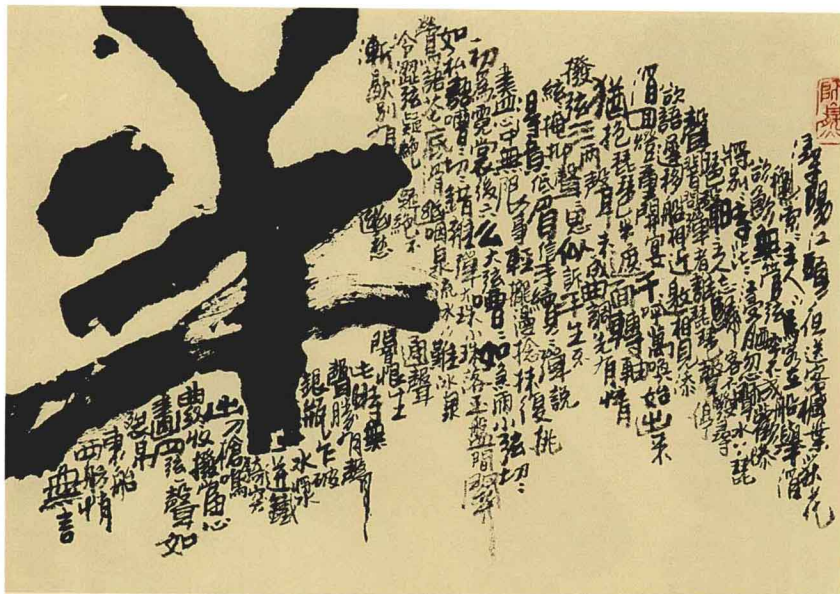 半
潯陽江頭但送客楓葉荻花
索索主人下馬客在船舉酒
欲飲無管弦醉不成歡慘
將別別時茫茫江浸月忽聞水上琵
琶聲主人忘歸客不發尋
聲闇問彈者誰琵琶聲停
欲語遲移船相近邀相見添
酒回燈重開宴千呼萬喚始出來
猶抱琵琶半遮面轉軸
撥弦三兩聲未成曲調先有情
絃掩抑聲思似訴平生不
得意低眉信手續續彈說
盡心中無限事輕攏慢撚抹復挑
初為霓裳後六么大弦嘈嘈如急雨小弦切切
如私語嘈嘈切切錯雜彈大珠小珠落玉盤間關
鶯語花底滑幽咽泉流水下難冰泉
冷澀弦疑絕疑絕不通聲
漸歇別有幽愁闇恨生
此時無
聲勝有聲
銀瓶乍破
水漿
迸鐵
騎突
出刀槍鳴
曲收撥當心
畫四弦一聲如
裂帛
東船
西舫悄
無言